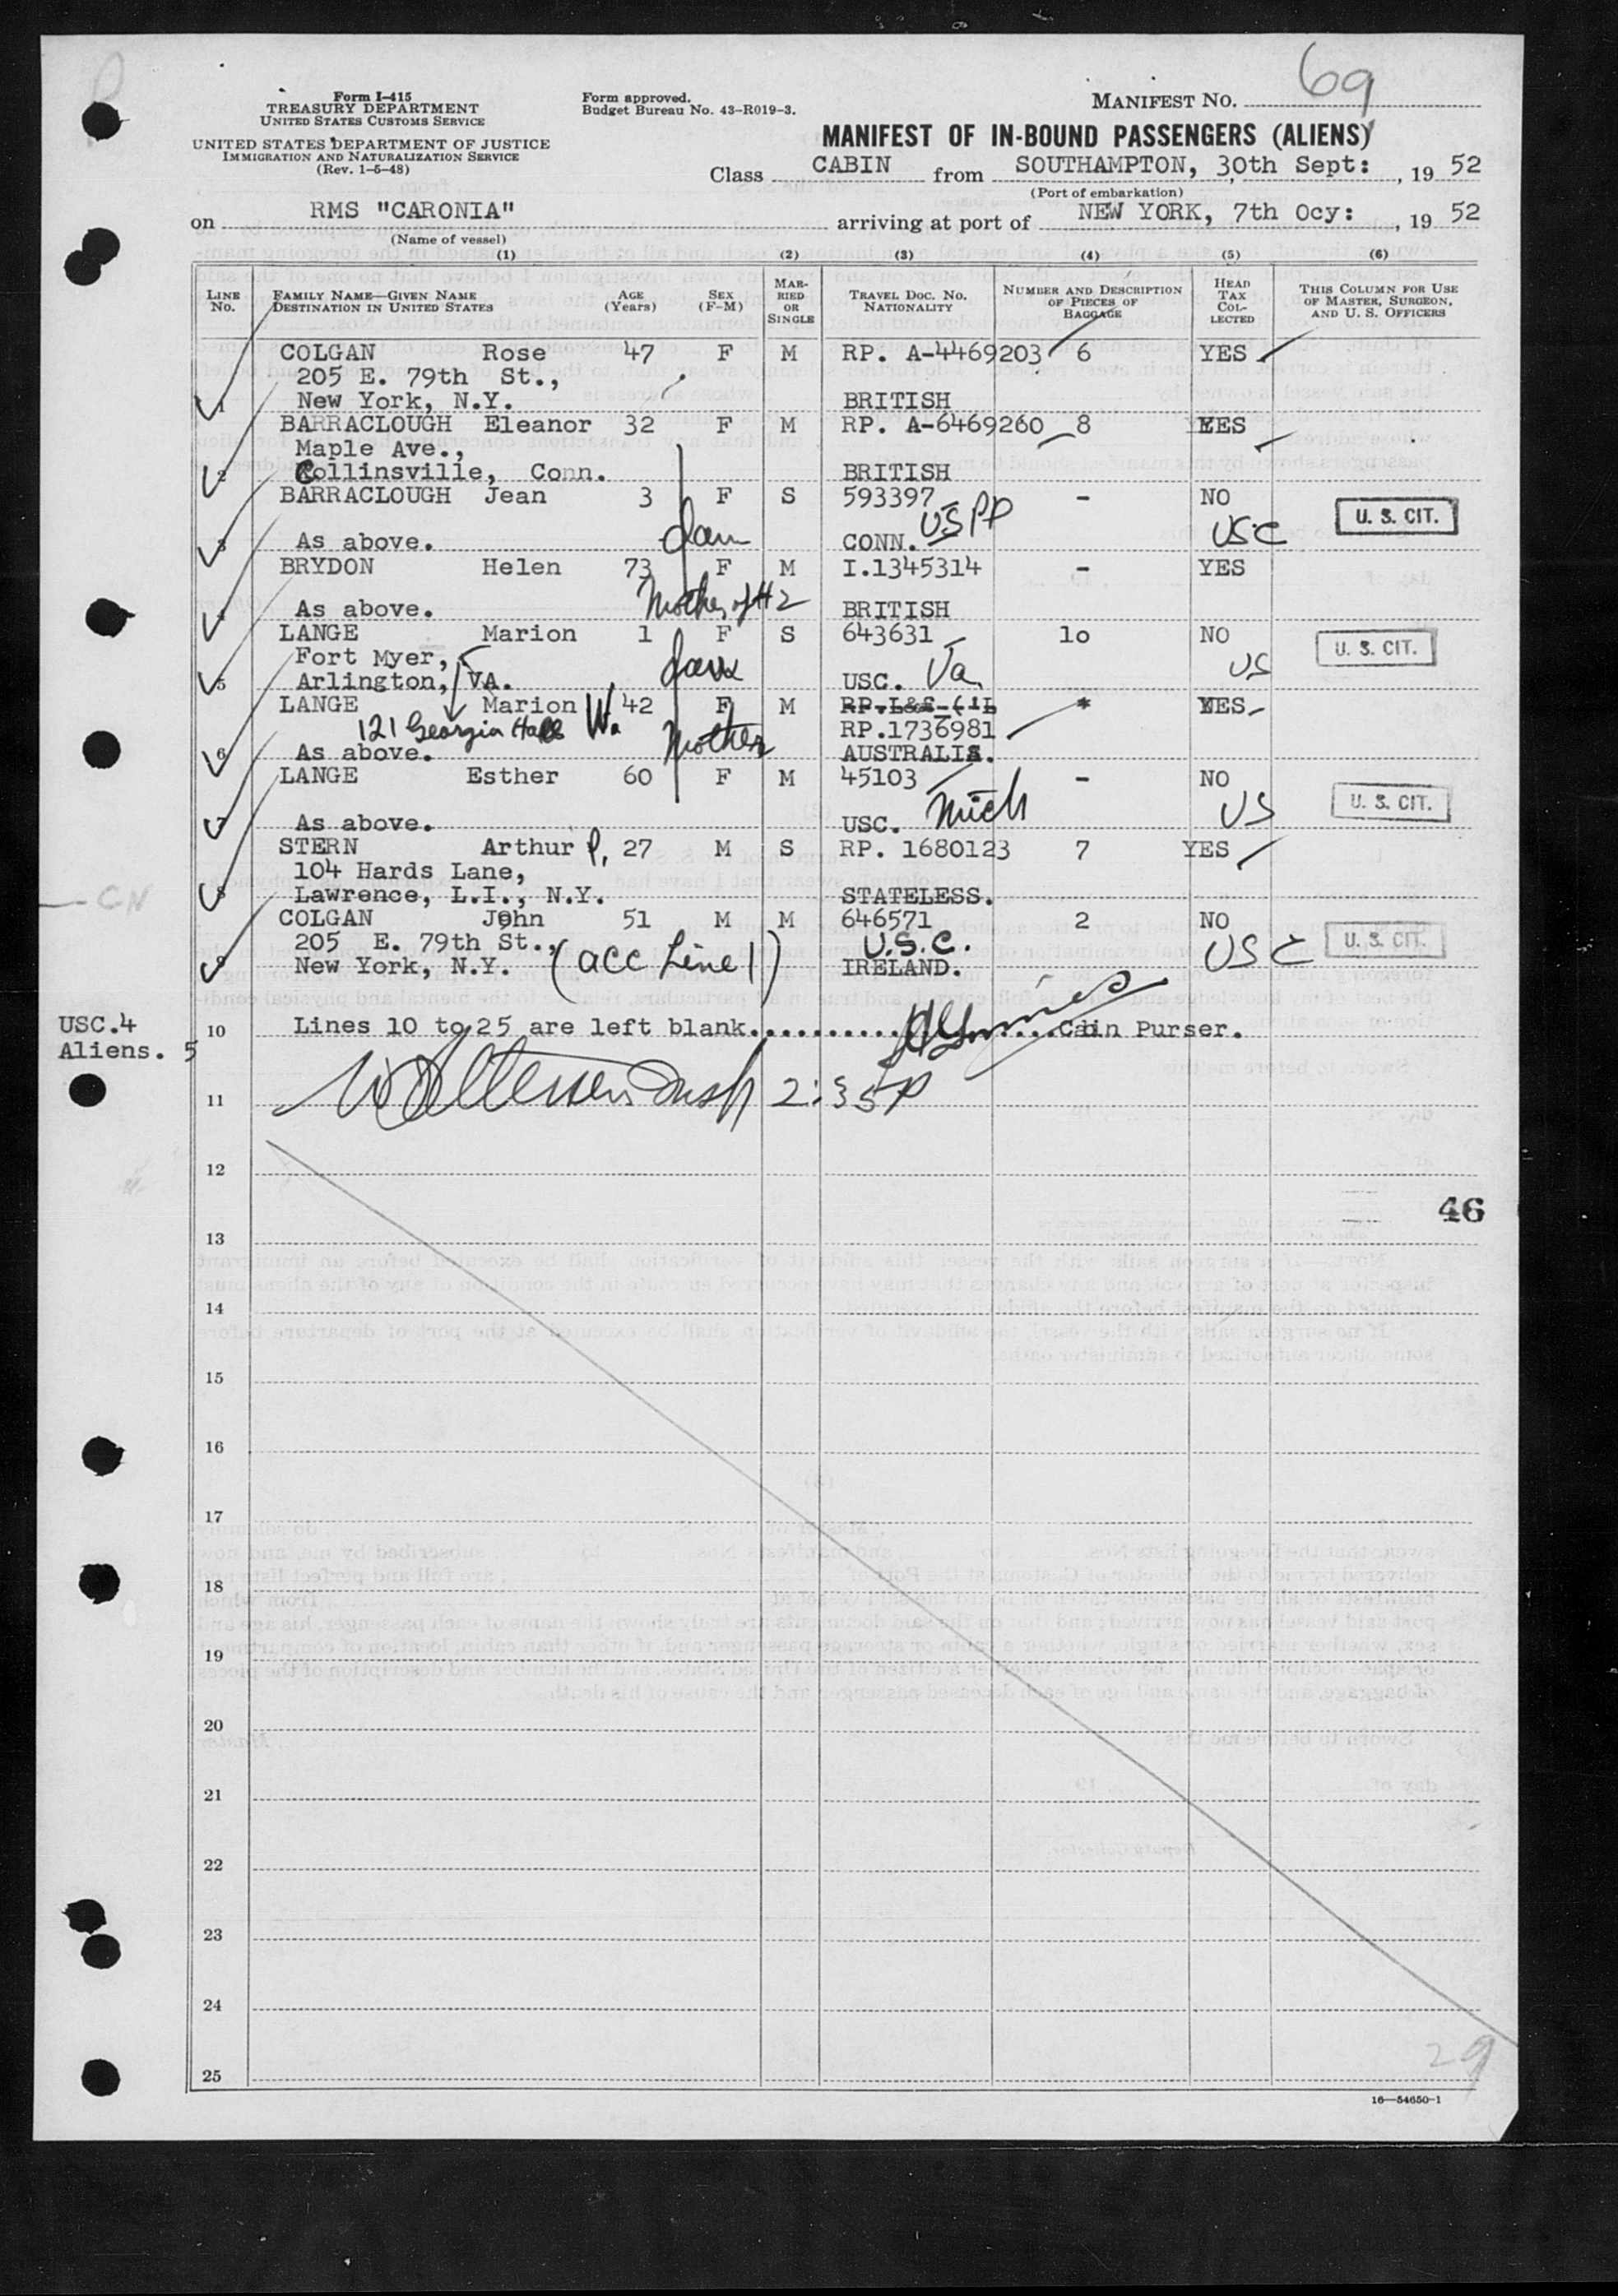 69
Form I-415
TREASURY DEPARTMENT
UNITED STATES CUSTOMS SERVICE
UNITED STATES DEPARTMENT OF JUSTICE
IMMIGRATION AND NATURALIZATION SERVICE
(Rev. 1-5-48)
Form approved.
Budget Bureau No. 43-R019-3.
MANIFEST NO.
MANIFEST OF IN-BOUND PASSENGERS (ALIENS)
Class CABIN from SOUTHAMPTON, 30th Sept: , 19 52
(Port of embarkation)
on RMS "CARONIA" arriving at port of NEW YORK, 7th Ocy: , 19 52
(Name of vessel)
(1) (2) (3) (4) (5) (6)
LINE No. FAMILY NAME—GIVEN NAME DESTINATION IN UNITED STATES AGE (Years) SEX (F-M) MARRIED OR SINGLE TRAVEL DOC. NO. NATIONALITY NUMBER AND DESCRIPTION OF PIECES OF BAGGAGE HEAD TAX COLLECTED THIS COLUMN FOR USE OF MASTER, SURGEON, AND U. S. OFFICERS
COLGAN Rose 47 F M RP. A-4469203 6 YES
205 E. 79th St.,
1 New York, N.Y. BRITISH
BARRACLOUGH Eleanor 32 F M RP. A-6469260 8 YES
Maple Ave.,
2 Collinsville, Conn. BRITISH
BARRACLOUGH Jean 3 F S 593397 - NO U. S. CIT.
US PP
3 As above. dau CONN. USC
BRYDON Helen 73 F M I.1345314 - YES
Mother of #2
4 As above. BRITISH
LANGE Marion 1 F S 643631 10 NO U. S. CIT.
Fort Myer,
5 Arlington, VA. dau USC. Va. US
LANGE Marion W. 42 F M * YES
121 Georgia RP.1736981
6 As above. Mother AUSTRALIA.
LANGE Esther 60 F M 45103 - NO U. S. CIT.
7 As above. USC. Mich US
STERN Arthur P. 27 M S RP. 1680123 7 YES
104 Hards Lane,
8 Lawrence, L.I., N.Y. STATELESS.
CN
COLGAN John 51 M M 646571 2 NO
205 E. 79th St., U.S.C. USC U. S. CIT.
9 New York, N.Y. (acc Line 1) IRELAND.
USC.4
Aliens. 5
10 Lines 10 to 25 are left blank. Cabin Purser.
11 2:35P
12
46
13
14
15
16
17
18
19
20
21
22
23
24
29
25
16—54650-1